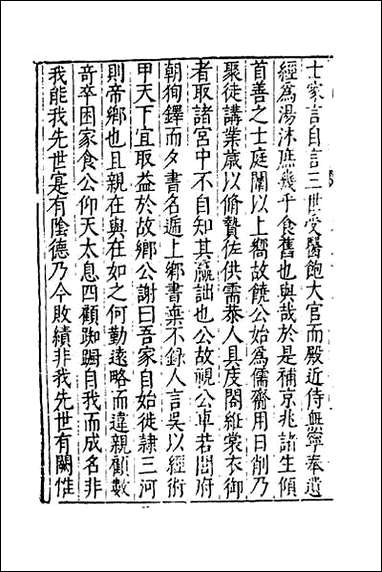 士家言自言三世受醫飽大官而嚴近侍無寧奉遺
經為湯沐庶幾乎食舊也與哉於是補京兆諸生傾
首善之士庭闈以上嚮故饒公始為儒齋用日削乃
聚徒講業歲以脩贄佐供需蔡人具度閣縰裳衣御
者取諸宮中不自知其瀛詘也公故視公卑若閭府
朝狥鐸而夕書名遞上鄉書棄不錄人言吳以經術
甲天下宜取益於故鄉公謝曰吾家自始徙隸三河
則帝鄉也且親在與在如之何勤遠略而違親顧數
奇卒困家食公仰天太息四顧踟躕自我而成名非
我能我先世寔有陰德乃今敗績非我先世有闕惟